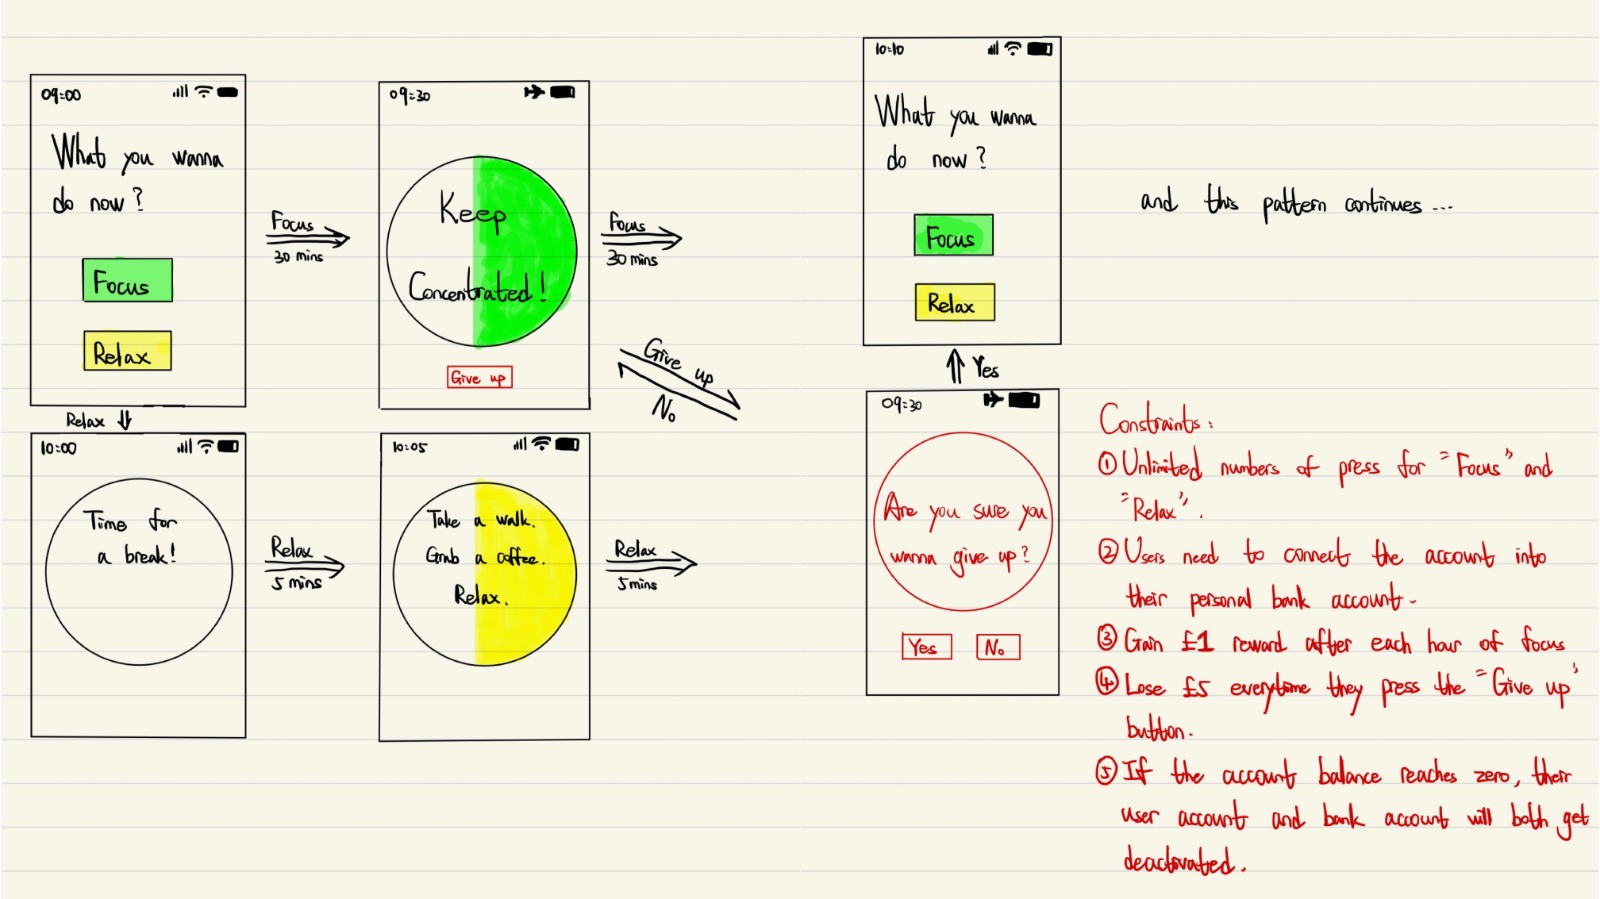 09:00
What you wanna
do now?
Focus
Relax
Focus
30 mins
09:30
Keep
Concentrated!
Give up
Focus
30 mins
Give up
No
Relax
10:00
Time for
a break!
Relax
5 mins
10:05
Take a walk.
Grab a coffee.
Relax.
Relax
5 mins
10:10
What you wanna
do now?
Focus
Relax
Yes
09:30
Are you sure you
wanna give up?
Yes
No
and this pattern continues ...
Constraints:
① Unlimited numbers of press for "Focus" and
"Relax".
② Users need to connect the account into
their personal bank account.
③ Gain £1 reward after each hour of focus
④ Lose £5 everytime they press the "Give up"
button.
⑤ If the account balance reaches zero, their
user account and bank account will both get
deactivated.